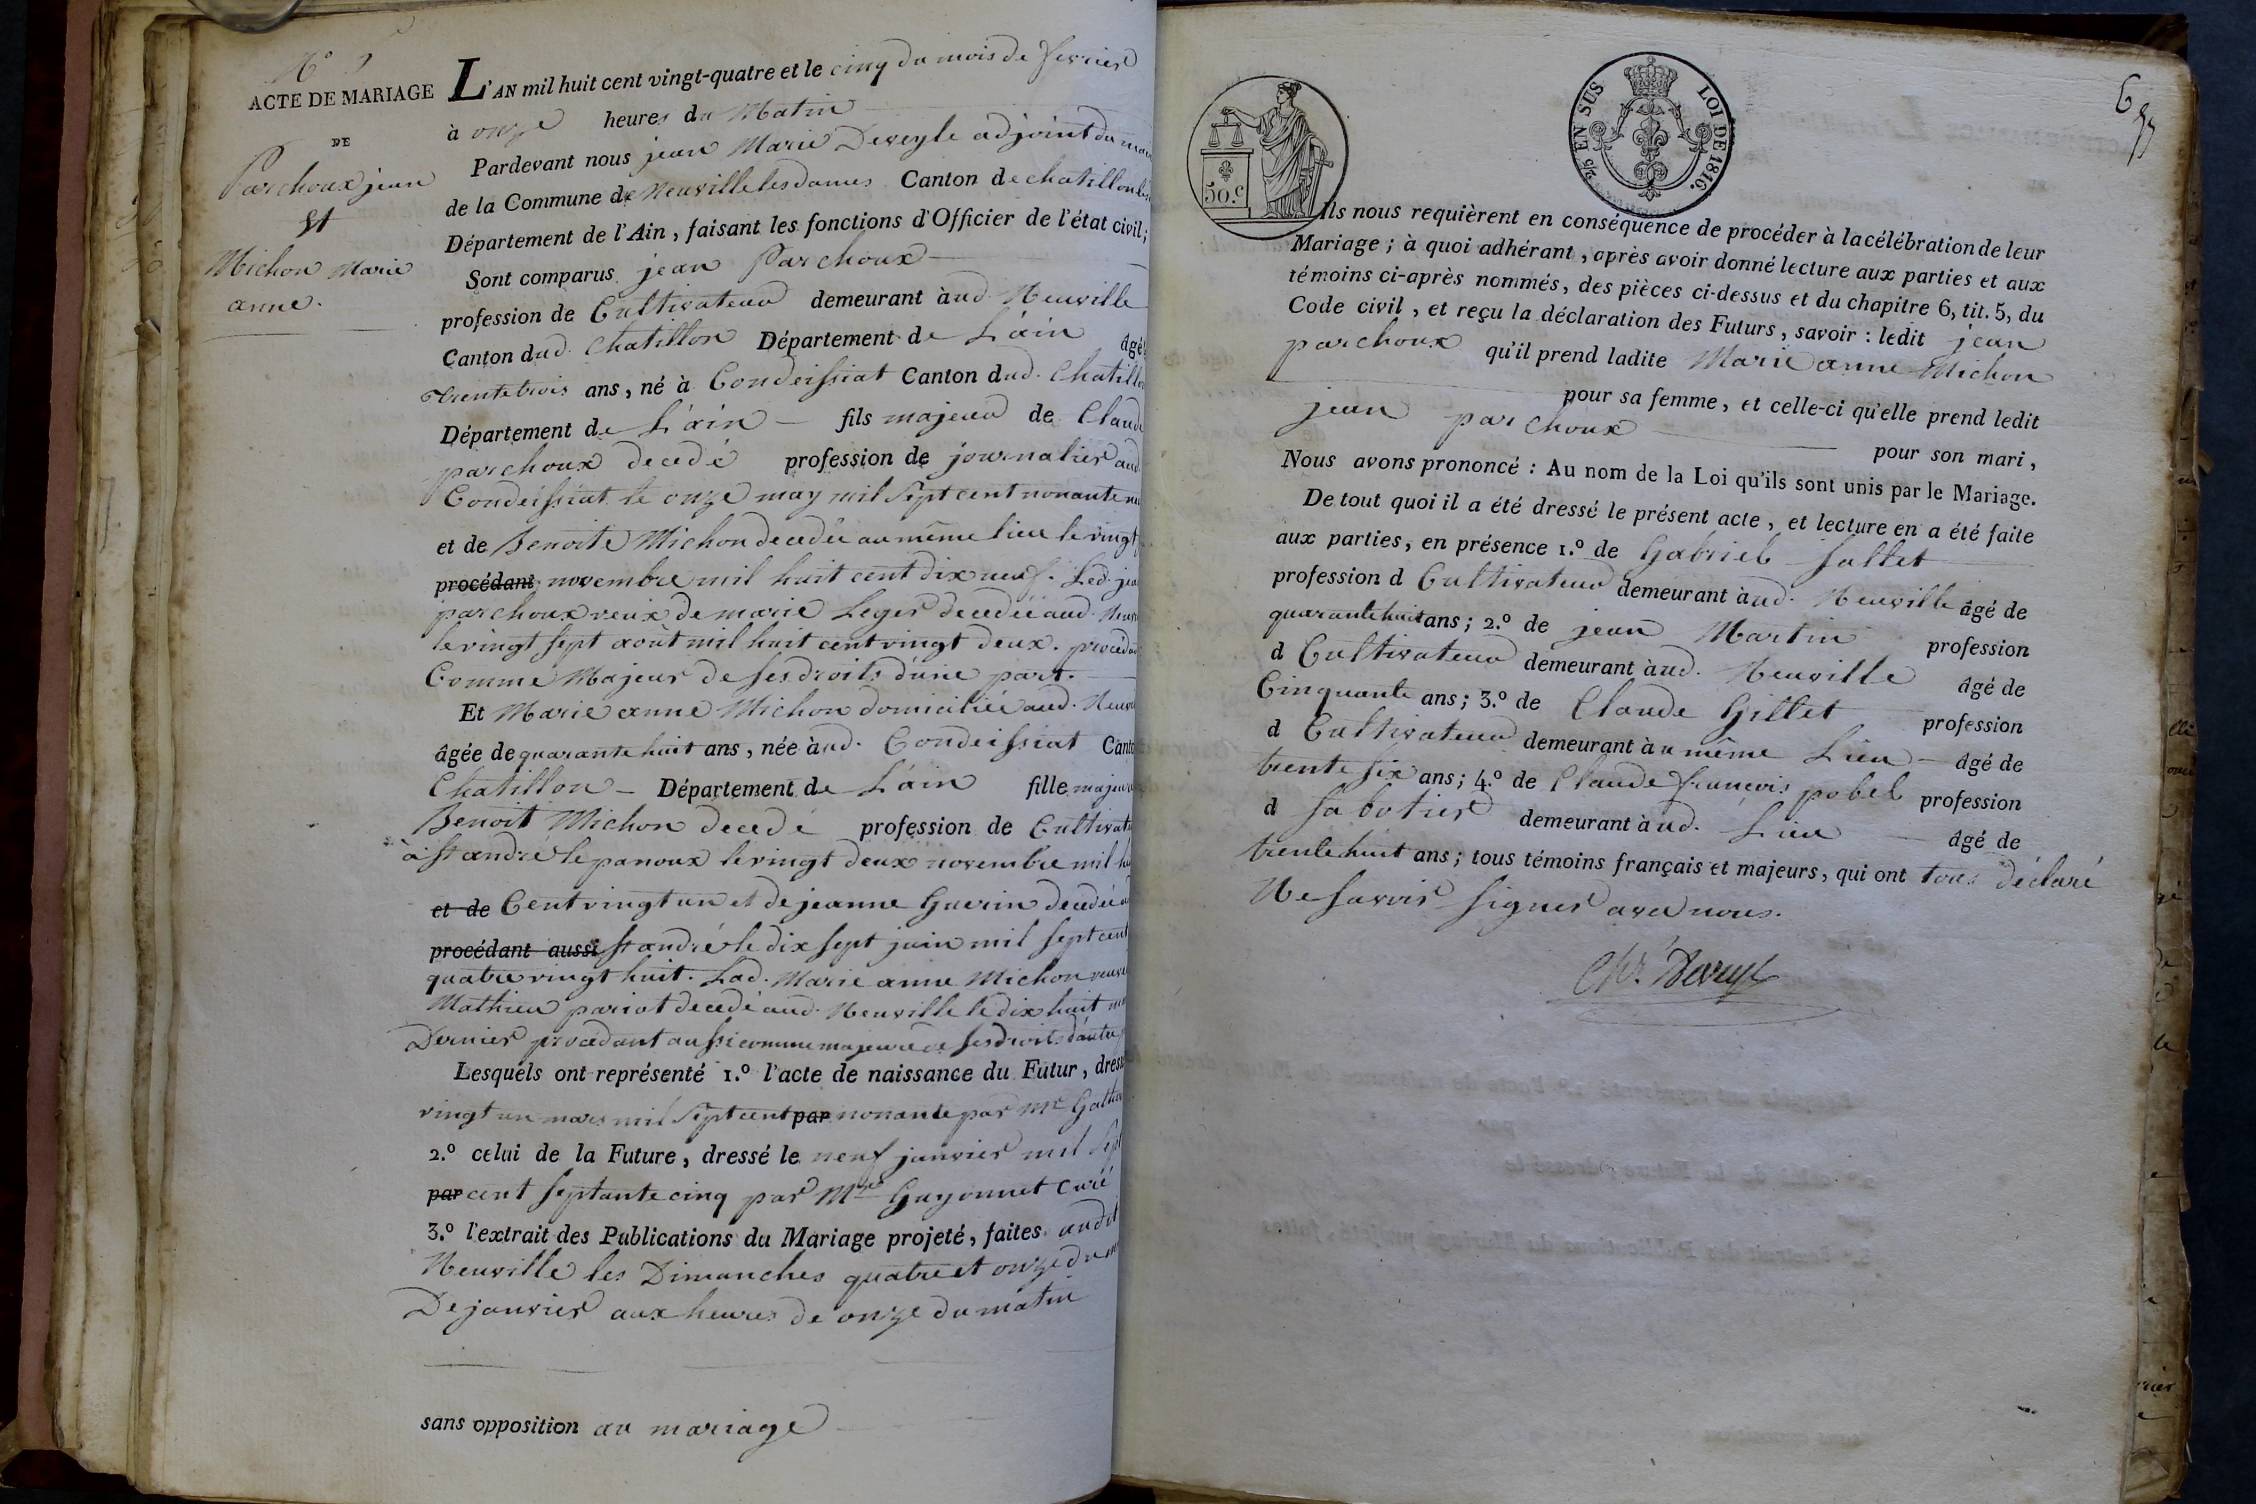 N.º
ACTE DE MARIAGE
DE
Parchoux jean
et
Michon Marie
anne.
L'AN mil huit cent vingt-quatre et le cinq du mois de fevrier
à onze heures du Matin
Pardevant nous jean Marie Deveyle adjoint du
de la Commune de Neuville les dames Canton de chatillon
Département de l'Ain, faisant les fonctions d'Officier de l'état civil;
Sont comparus jean Parchoux
profession de Cultivateur demeurant àud. Neuville
Canton dud. Chatillon Département de L'ain âgé
trente trois ans, né à Condeissiat Canton dud. Chatillon
Département de L'ain fils majeur de Claude
parchoux decedé profession de journalier aud.
Condeissiat le onze may mil sept cent nonante
et de Benoite Michon decedée au même lieu le vingt
procédant novembre mil huit cent dix neuf. Led. jean
parchoux veuf de marie Leger decedée aud.
le vingt sept août mil huit cent vingt deux.
Comme Majeur de ses droits d'une part.
Et Marie anne Michon domiciliée aud.
âgée de quarante huit ans, née àud. Condeissiat
Chatillon Département de L'ain fille majeure
Benoit Michon decedé profession de
à st andré le panoux le vingt deux novembre mil
et de Cent vingt un et de jeanne Guerin decedée
procédant aussi st andré le dix sept juin mil sept cent
quatre vingt huit. Lad. Marie anne Michon veuve
Mathieu pariot decedé aud. Neuville le dix huit
Dernier procedant aussi comme majeure de ses droits d'autre
Lesquels ont représenté 1.º l'acte de naissance du Futur,
vingt un mars mil sept cent par nonante par Mre
2.º celui de la Future, dressé le neuf janvier mil sept
par cent septante cinq par Mre Guyonnet Curé
3.º l'extrait des Publications du Mariage projeté, faites audit
Neuville les Dimanches quatre et onze du
De janvier aux heures de onze du matin
sans opposition au mariage
50.c
25 EN SUS LOI DE 1816.
Ils nous requièrent en conséquence de procéder à la célébration de leur
Mariage; à quoi adhérant, après avoir donné lecture aux parties et aux
témoins ci-après nommés, des pièces ci-dessus et du chapitre 6, tit. 5, du
Code civil, et reçu la déclaration des Futurs, savoir: ledit jean
parchoux qu'il prend ladite Marie anne Michon
pour sa femme, et celle-ci qu'elle prend ledit
jean parchoux pour son mari,
Nous avons prononcé: Au nom de la Loi qu'ils sont unis par le Mariage.
De tout quoi il a été dressé le présent acte, et lecture en a été faite
aux parties, en présence 1.º de Gabriel Sallet
profession d Cultivateur demeurant àud. Neuville âgé de
quarante huit ans; 2.º de jean Martin profession
d Cultivateur demeurant àud. Neuville âgé de
Cinquante ans; 3.º de Claude Gillet profession
d Cultivateur demeurant àu même Lieu âgé de
trente six ans; 4.º de Claude françois pobel profession
d Sabotier demeurant àud. Lieu âgé de
trente huit ans; tous témoins français et majeurs, qui ont tous déclaré
Ne savoir signer avec nous.